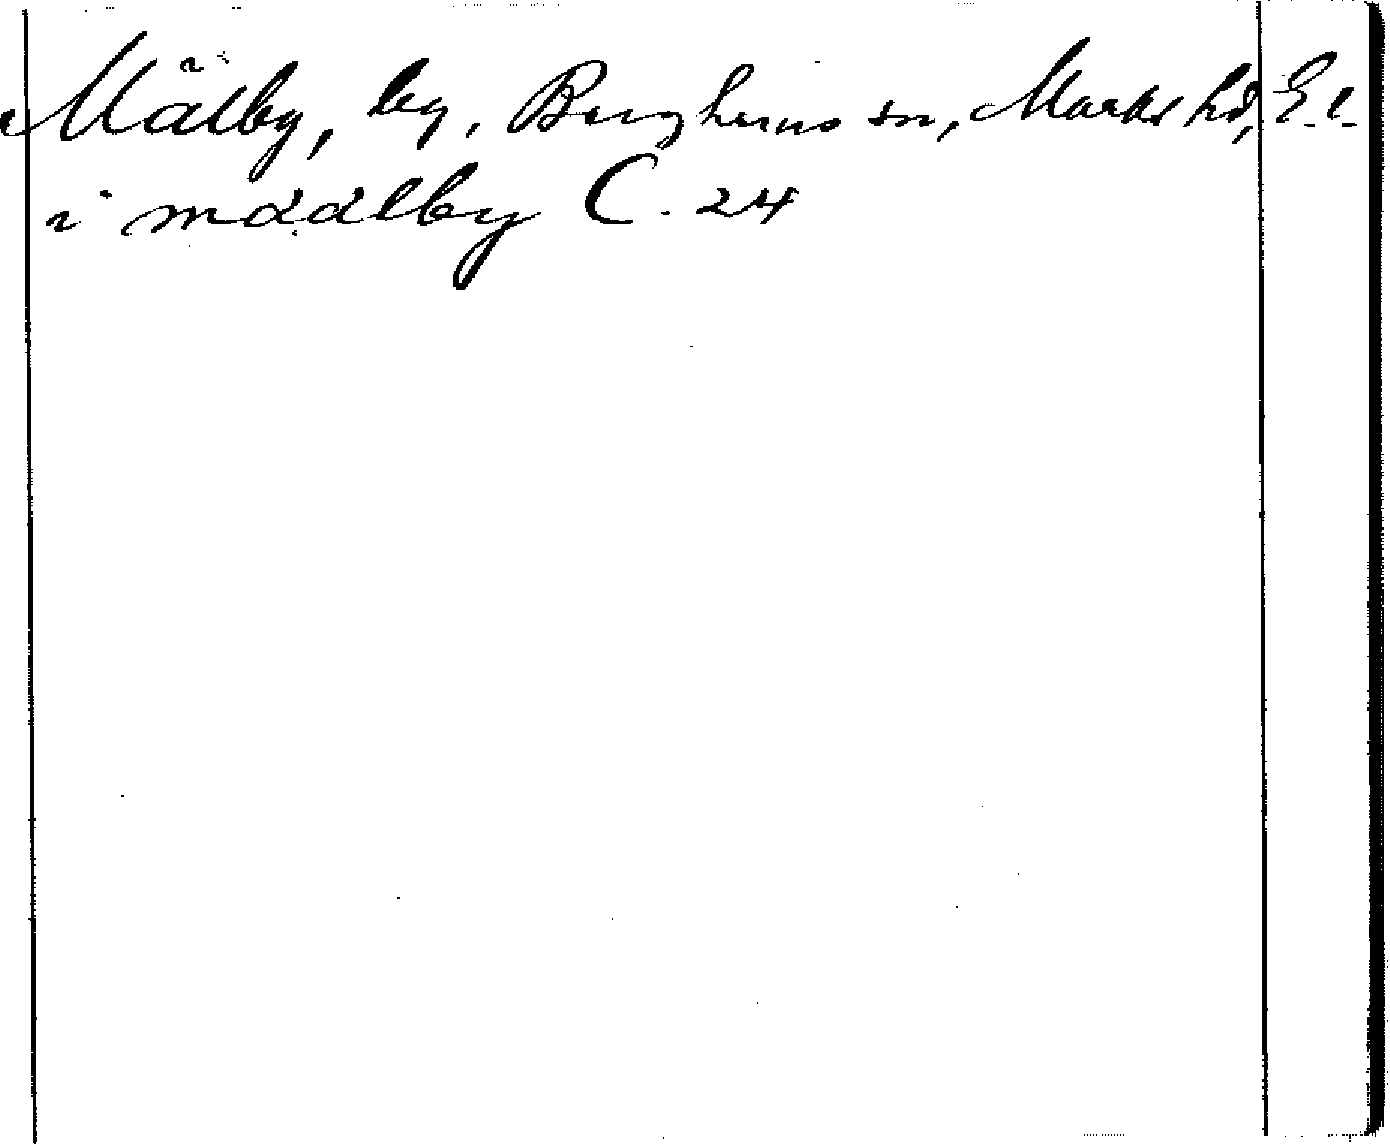 Mälby, by, Berghems sn, Marks hd, E.l.
i maalby C. 24